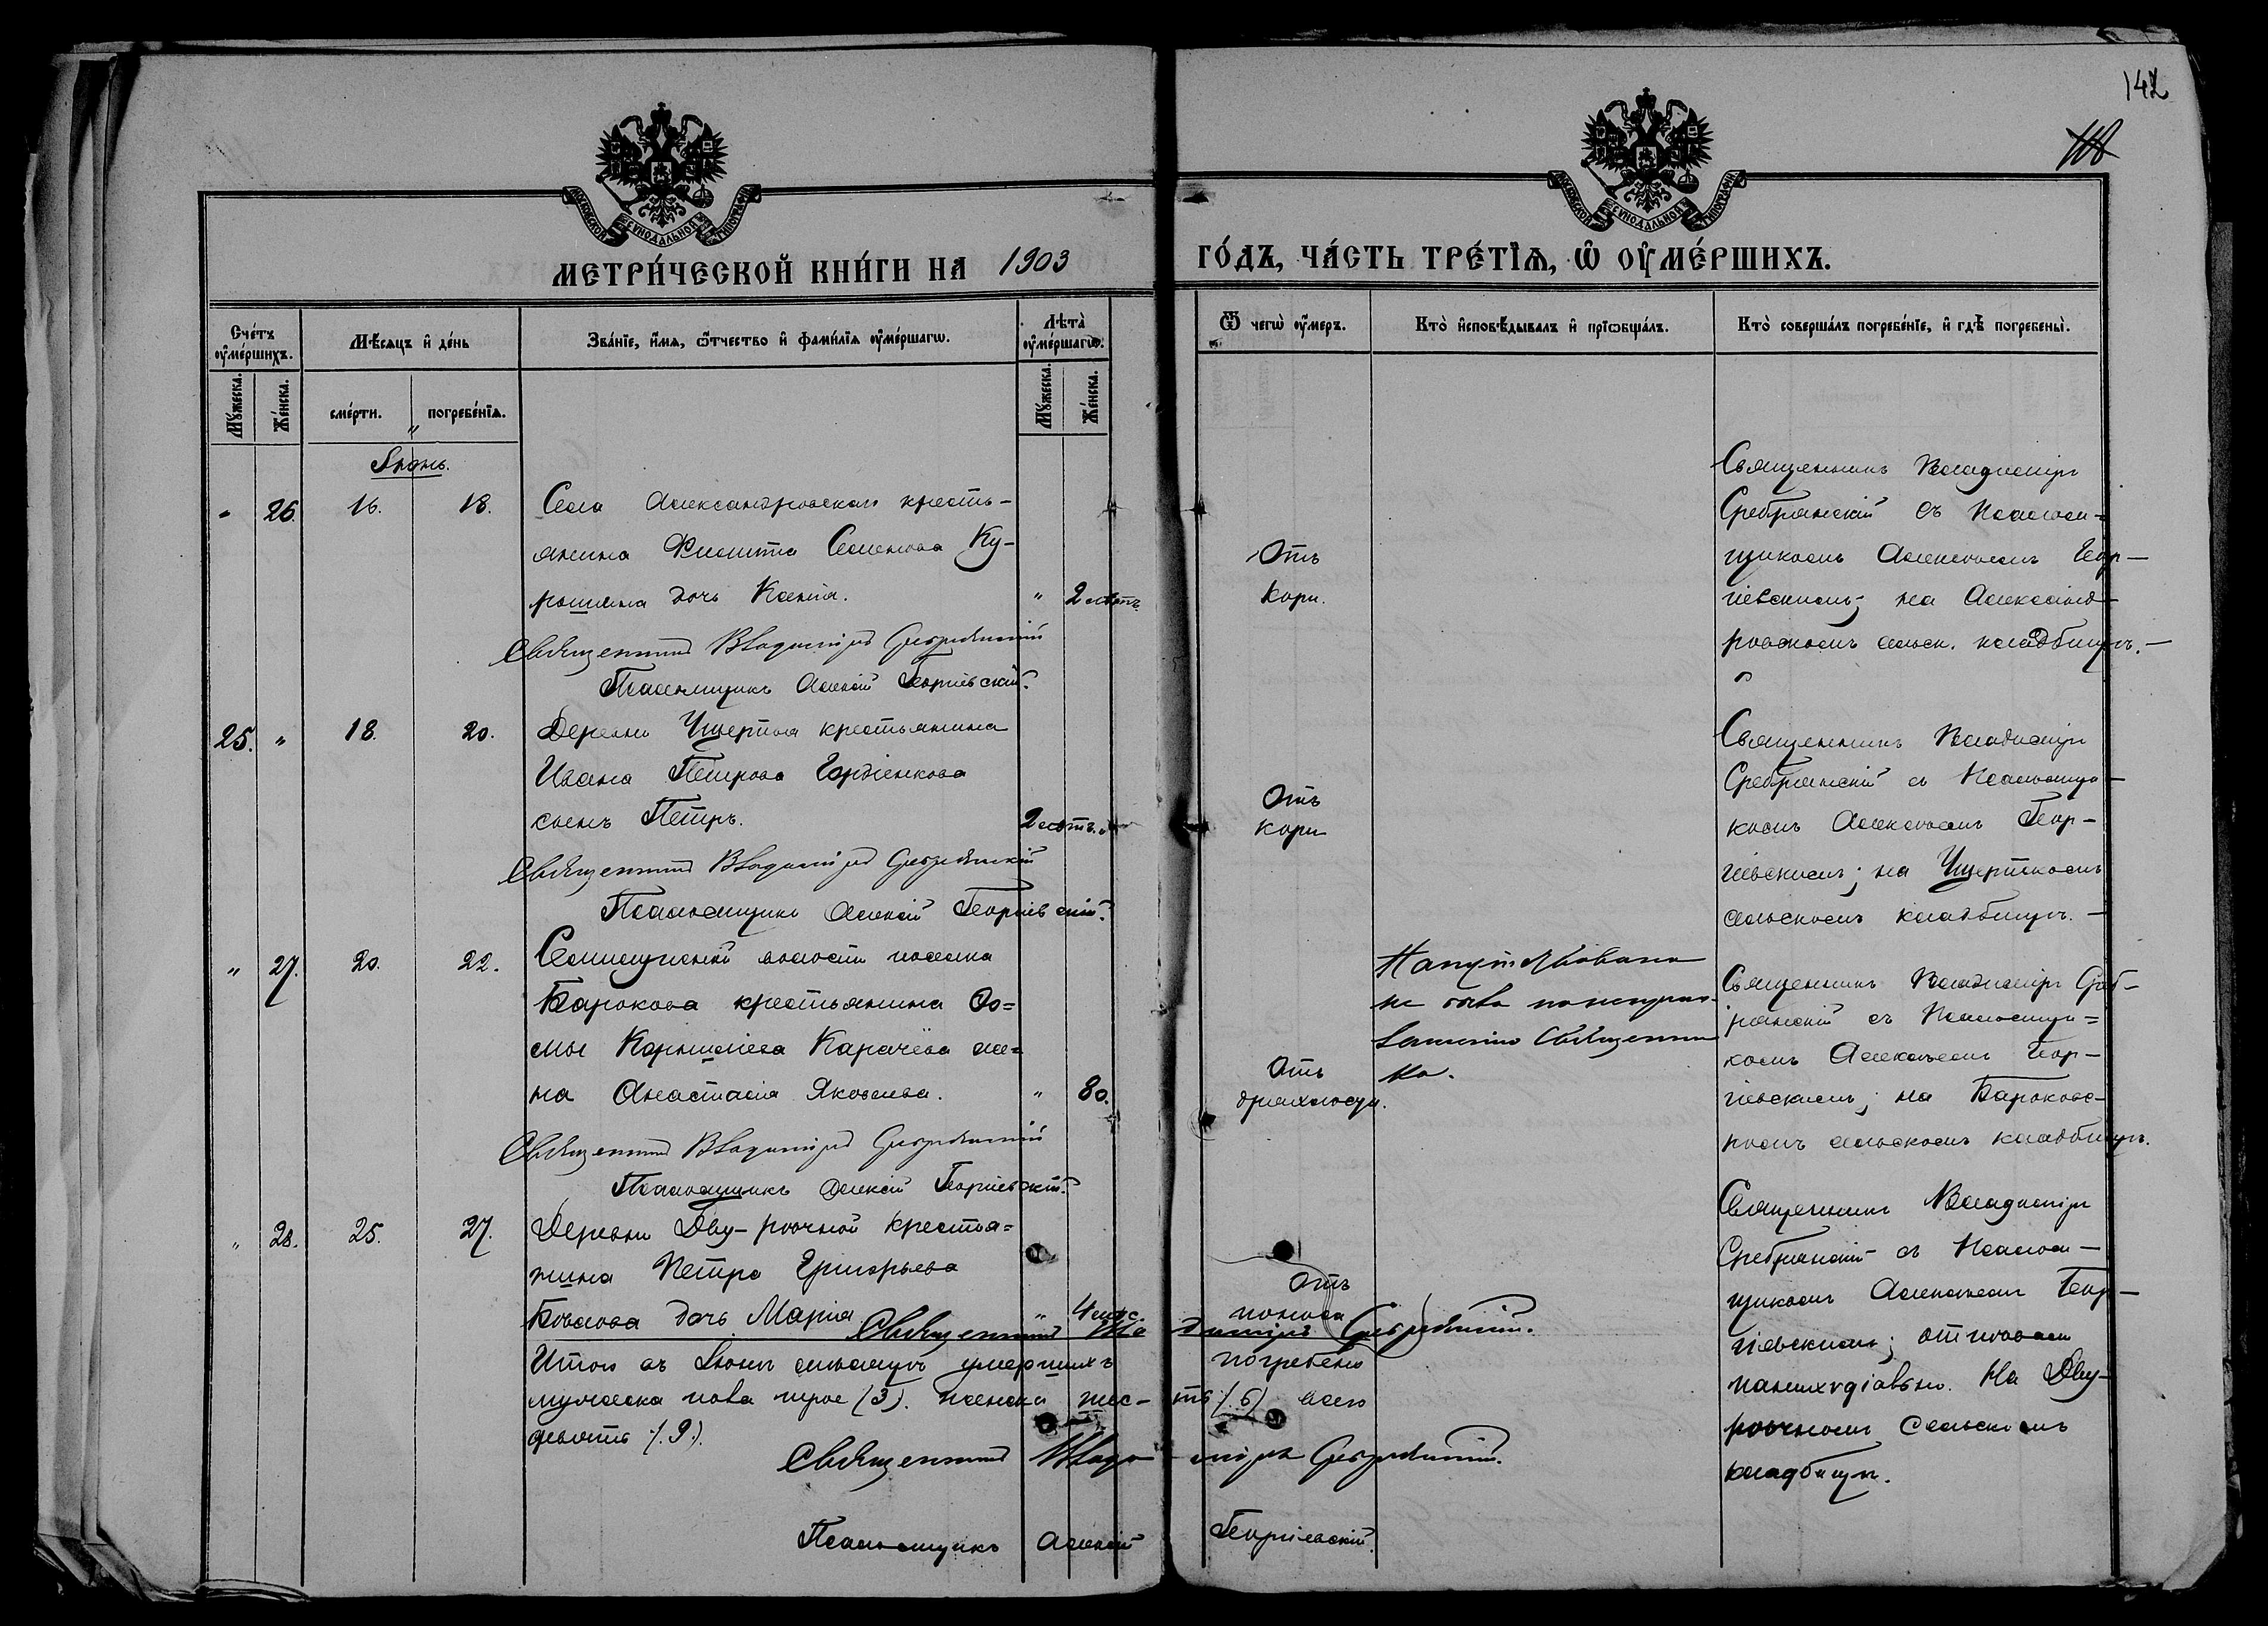 142
108
МОСКОВСКОЙ СѴНОДАЛЬНОЙ ТИПОГРАФІИ
МОСКОВСКОЙ СѴНОДАЛЬНОЙ ТИПОГРАФІИ
МЕТРИ́ЧЕСКОЙ КНИ́ГИ НА 1903
ГО́ДЪ, ЧА́СТЬ ТРЕ́ТЇѦ, Ѡ ОУМЕ́РШИХЪ.
Сче́тъ оуме́ршихъ.
Мꙋ́жеска.
Же́нска.
Мѣ́сяцъ и де́нь
сме́рти.
погребе́нїѧ.
Зва́нїе, и́мѧ, ѻ́тчество и фами́лїѧ оуме́ршагѡ.
Лѣ́та оуме́ршагѡ.
Мꙋ́жеска.
Же́нска.
Ѿ чегѡ̀ оу́меръ.
Кто̀ и́сповѣ́дывалъ и прїѡбща́лъ.
Кто̀ соверша́лъ погребе́нїе, и гдѣ̀ погребены̀.
Іюнь.
" 26. 16. 18. Села Александровскаго кресть-
янина Филиппа Семенова Ку-
рошина дочь Ксенія. " 2 лѣтъ
Священникъ Владиміръ Сребрянскій
Псаломщикъ Алексій Георгіевскій.
Отъ
кори.
Священникъ Владиміръ
Сребрянскій съ Псалом-
щикомъ Алексѣемъ Геор-
гіевскимъ; на Александ-
ровскомъ сельск. кладбищѣ.
25. " 18. 20. Деревни Ущерпья крестьянина
Ивана Петрова Гордіенкова
сынъ Петръ. 2 лѣтъ. "
Священникъ Владиміръ Сребрянскій
Псаломщикъ Алексій Георгіевскій.
Отъ
кори
Священникъ Владиміръ
Сребрянскій съ Псаломщи-
комъ Алексѣемъ Геор-
гіевскимъ; на
сельскомъ кладбищѣ.
" 27. 20. 22. волости поселка
крестьянина Ѳо-
мы Карачёва же-
на Анастасія Яковлева. " 80.
Священникъ Владиміръ Сребрянскій
Псаломщикъ Алексій Георгіевскій.
Отъ
дряхлости.
Напутствована
не была по
Священни
ка.
Священникъ Владиміръ Среб-
рянскій съ Псаломщи-
комъ Алексѣемъ Геор-
гіевскимъ; на
сельскомъ кладбищѣ.
" 28. 25. 27. Деревни Дву-рочной крестья-
нина Петра Григорьева
дочь Марія " 4 мѣс.
Священникъ Владиміръ Сребрянскій.
Отъ
поноса
Священникъ Владиміръ
Сребрянскій съ Псалом-
щикомъ Алексѣемъ Геор-
гіевскимъ;
На Дву-
рочномъ Сельскомъ
кладбищѣ.
Итого въ Іюнѣ мѣсяцѣ умершихъ погребено
мужеска пола трое (3). женска шесть (6) всего
девять (9).
Священникъ Владиміръ Сребрянскій.
Псаломщикъ Алексій Георгіевскій.